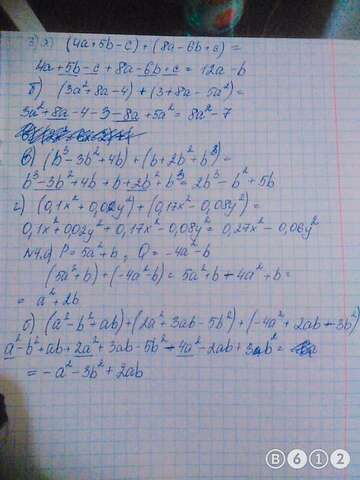 3) а) (4a+5b-c)+(8a-6b+c)=
4a+5b-c+8a-6b+c=12a-b
б) (3a²+8a-4)+(3+8a-5a²)=
3a²+8a-4-3-8a+5a²=8a²-7
в) (b³-3b²+4b)+(b+2b²+b³)=
b³-3b²+4b+b+2b²+b³=2b³-b²+5b
г) (0,1x²+0,02y²)+(0,17x²-0,08y²)=
0,1x²+002y²+0,17x²-0,08y²=0,27x²-0,06y²
№4.а) P=5a²+b, Q=-4a²-b
(5a²+b)+(-4a²-b)=5a²+b-4a²+b=
=a²+2b
б) (a²-b²+ab)+(2a²+3ab-5b²)+(-4a²+2ab-3b²)
a²-b²+ab+2a²+3ab-5b²-4a²-2ab+3ab²=
=-a²-3b²+2ab
B612